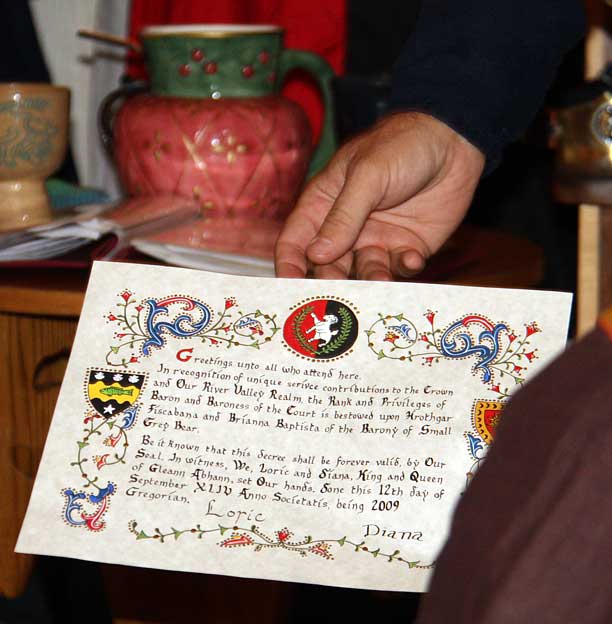 Greetings unto all who attend here.
In recognition of unique serivce contributions to the Crown
and Our River Valley Realm, the Rank and Privileges of
Baron and Baroness of the Court is bestowed upon Hrothgar
Fiscabana and Brianna Baptista of the Barony of Small
Grey Bear.
Be it known that this Decree shall be forever valid, by Our
Seal. In witness, We, Loric and Diana, King and Queen
of Gleann Abhann, set Our hands. Done this 12th day of
September XLIV Anno Societatis, being 2009
Gregorian.
Loric
Diana